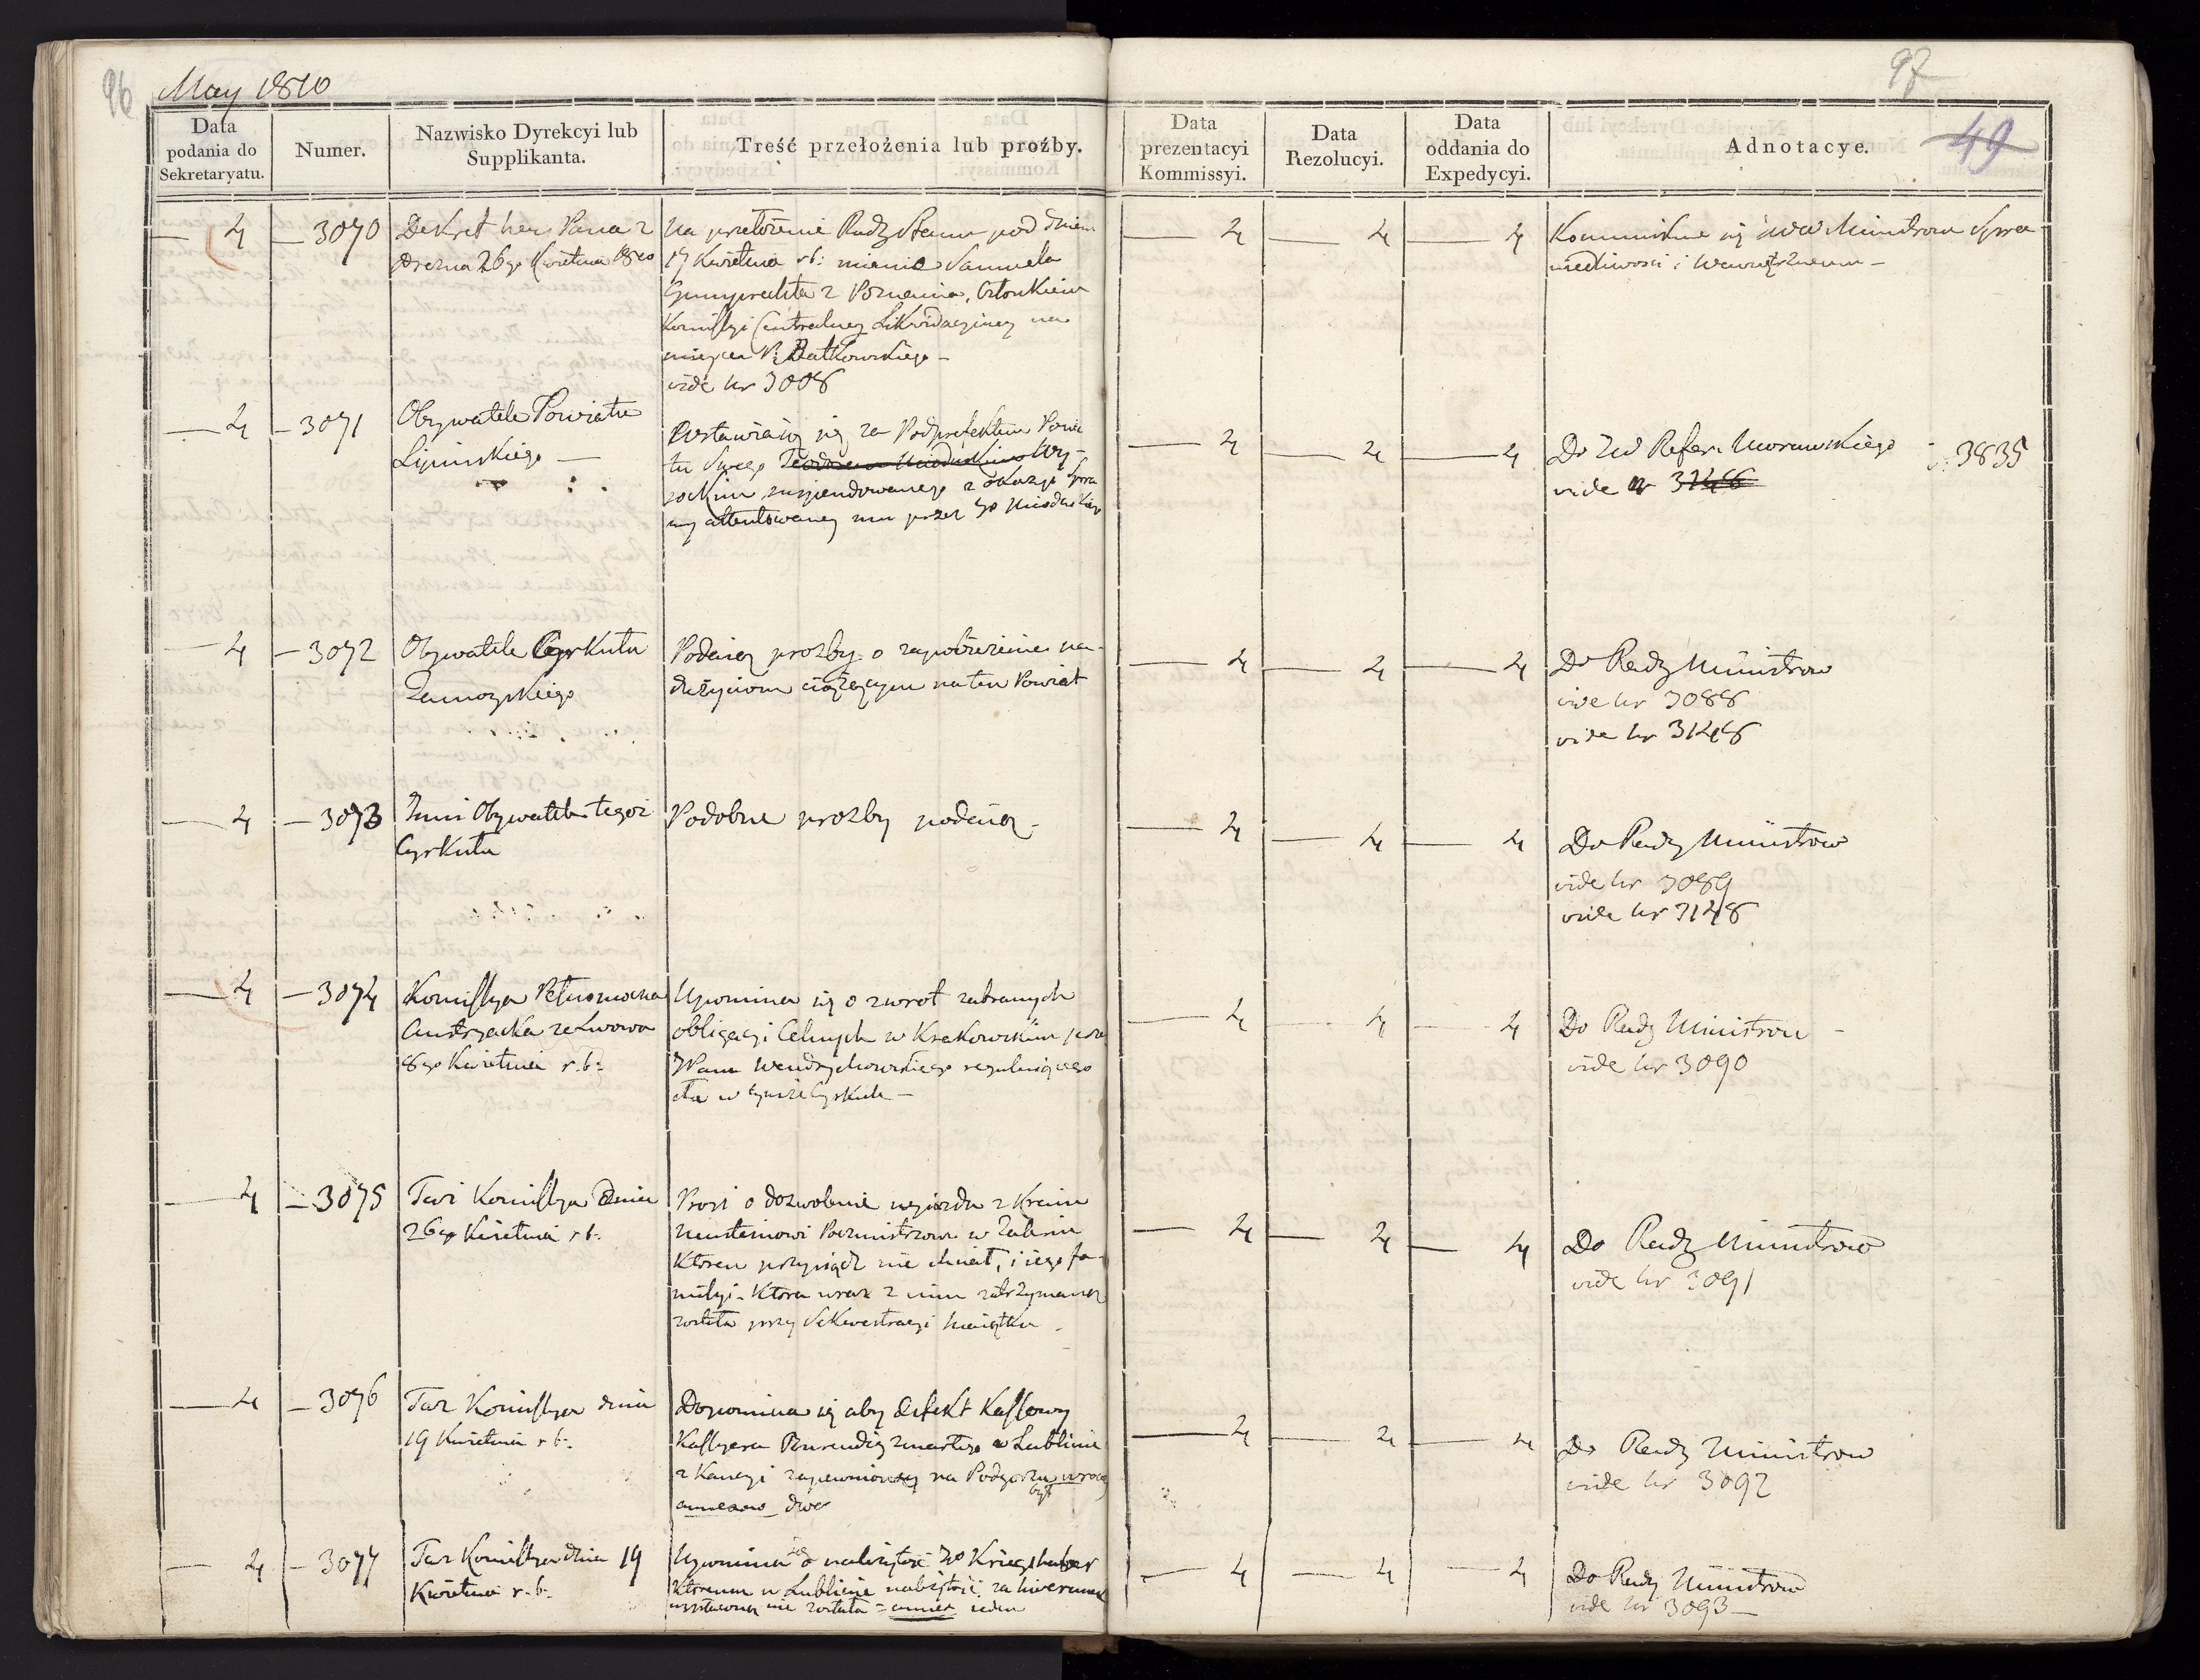 96
May 1810
97
49
Data podania do Sekretaryatu.
Numer.
Nazwisko Dyrekcyi lub Supplikanta.
Treść przełożenia lub proźby.
Data prezentacyi Kommissyi.
Data Rezolucyi.
Data oddania do Expedycyi.
Adnotacye.
4
3070
Dekret Pana z
Drezna 26go Kwietnia 1810
Na przełożenie Rady Stanu pod dniem
17 Kwietnia r.b: mianie Samuela
z Poznania, Członkiem
Komissyi Centralney Likwidacyiney na
mieysce P. Batkowskiego
vide Nr 3008
4
4
4
Kommunikue się Ministrom Spra-
wiedliwości i Wewnętrznemu
4
3071
Obywatele Powiatu
Lipinskiego
Wstawiaią się za Podprefektem Powia
tu Swego Wy-
sockim suspendowanego z okazyi Spra
wy attentowaney mu przez
4
4
4
Do JW Refer. Morawskiego
3835
vide Nr 3246
4
3072
Obywatele Cyrkułu
Zamoyskiego
Podaią prozby o zapobieżenie na-
dużyciom ciążącym na ten Powiat
4
4
4
Do Rady Ministrow
vide Nr 3088
vide Nr 3148
4
3073
Inni Obywatele tegoż
Cyrkułu
Podobne prozby podaią
4
4
4
Do Rady Ministrow
vide Nr 3089
vide Nr 3148
4
3074
Komissya Pełnomocna
Austryacka ze Lwowa
8go Kwietnia r.b:
Upomina się o zwrot zabranych
obligacyi Celnych w Krakowskim przez
JPana Wendrychowskiego reguluiącego
cła w tymże Cyrkule
4
4
4
Do Rady Ministrow
vide Nr 3090
4
3075
Taż Komissya dnia
26go Kwietnia r.b.
Prosi o dozwolenie wyiazdu z Kraiu
Pocmistrzowi w
Ktoren przysiądz nie chciał, i iego fa-
milyi Ktora wraz z nim zatrzymana
została przy Sekwestracyi Maiątku
4
4
4
Do Rady Ministrow
vide Nr 3091
4
3076
Taż Komissya dnia
19 Kwietnia r.b:
Dopomina się aby defekt Kassowy
Kassyera zmarłego w Lublinie
z Kaucyi zapewnioney na Podgorzu
był
annexow dwa
4
4
4
Do Rady Ministrow
vide Nr 3092
4
3077
Taż Komissya dnia 19
Kwietnia r.b:
Upomina się o należytość JP Kriegshaber
Ktoremu w Lublinie należytość za liwerunek
wypłacona nie została = annex ieden
4
4
4
Do Rady Ministrow
vide Nr 3093